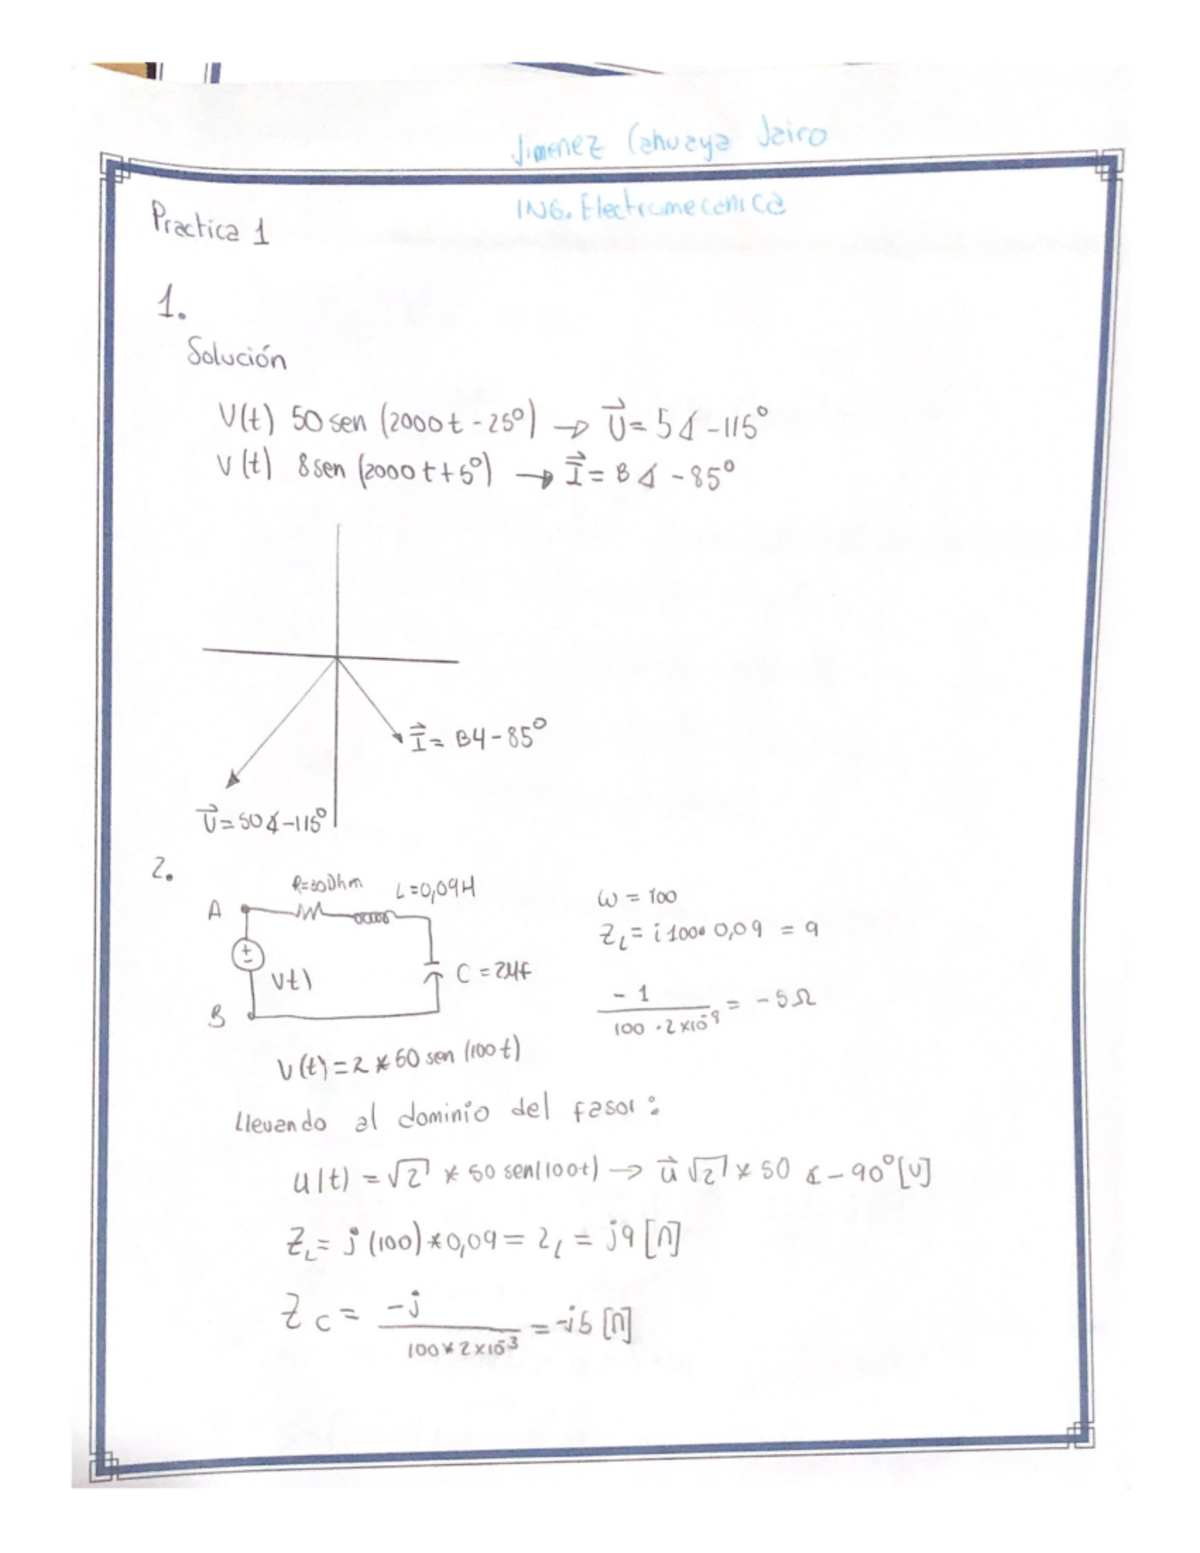 Jimenez Cahuaya Jairo
ING. Electromecanica
Practica 1
1.
Solución
V(t) 50 sen (2000t - 25°) → U = 5∡-115°
v(t) 8 sen (2000t + 5°) → I = 8∡-85°
I = 8∡-85°
U = 50∡-115°
2.
L = 0,09H
A
C = 2Mf
Vt)
B
ω = 100
Z_L = i 100* 0,09 = 9
-1
100 · 2x10 = -5Ω
V(t) = 2 * 50 sen (100t)
Llevando al dominio del fasor:
u(t) = √2 * 50 sen(100t) → u √2 * 50 ∡-90° [V]
Z_L = j (100) * 0,09 = Z_L = j9 [Ω]
Z_C = -j
100 * 2x10^-3 = -j5 [Ω]